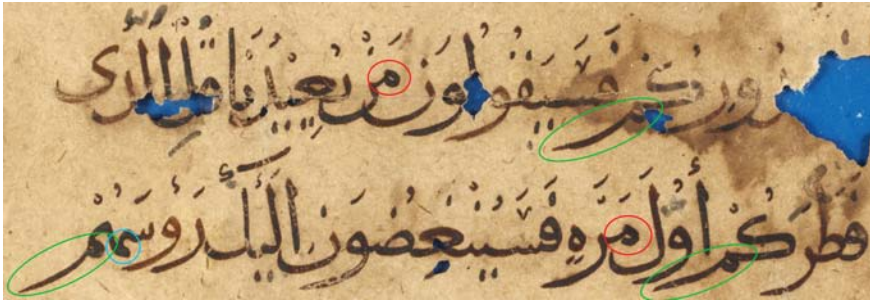 دوركم فسيقولون من يعيدنا قل الذي
فطركم أول مرة فسينغضون إليك رؤسهم